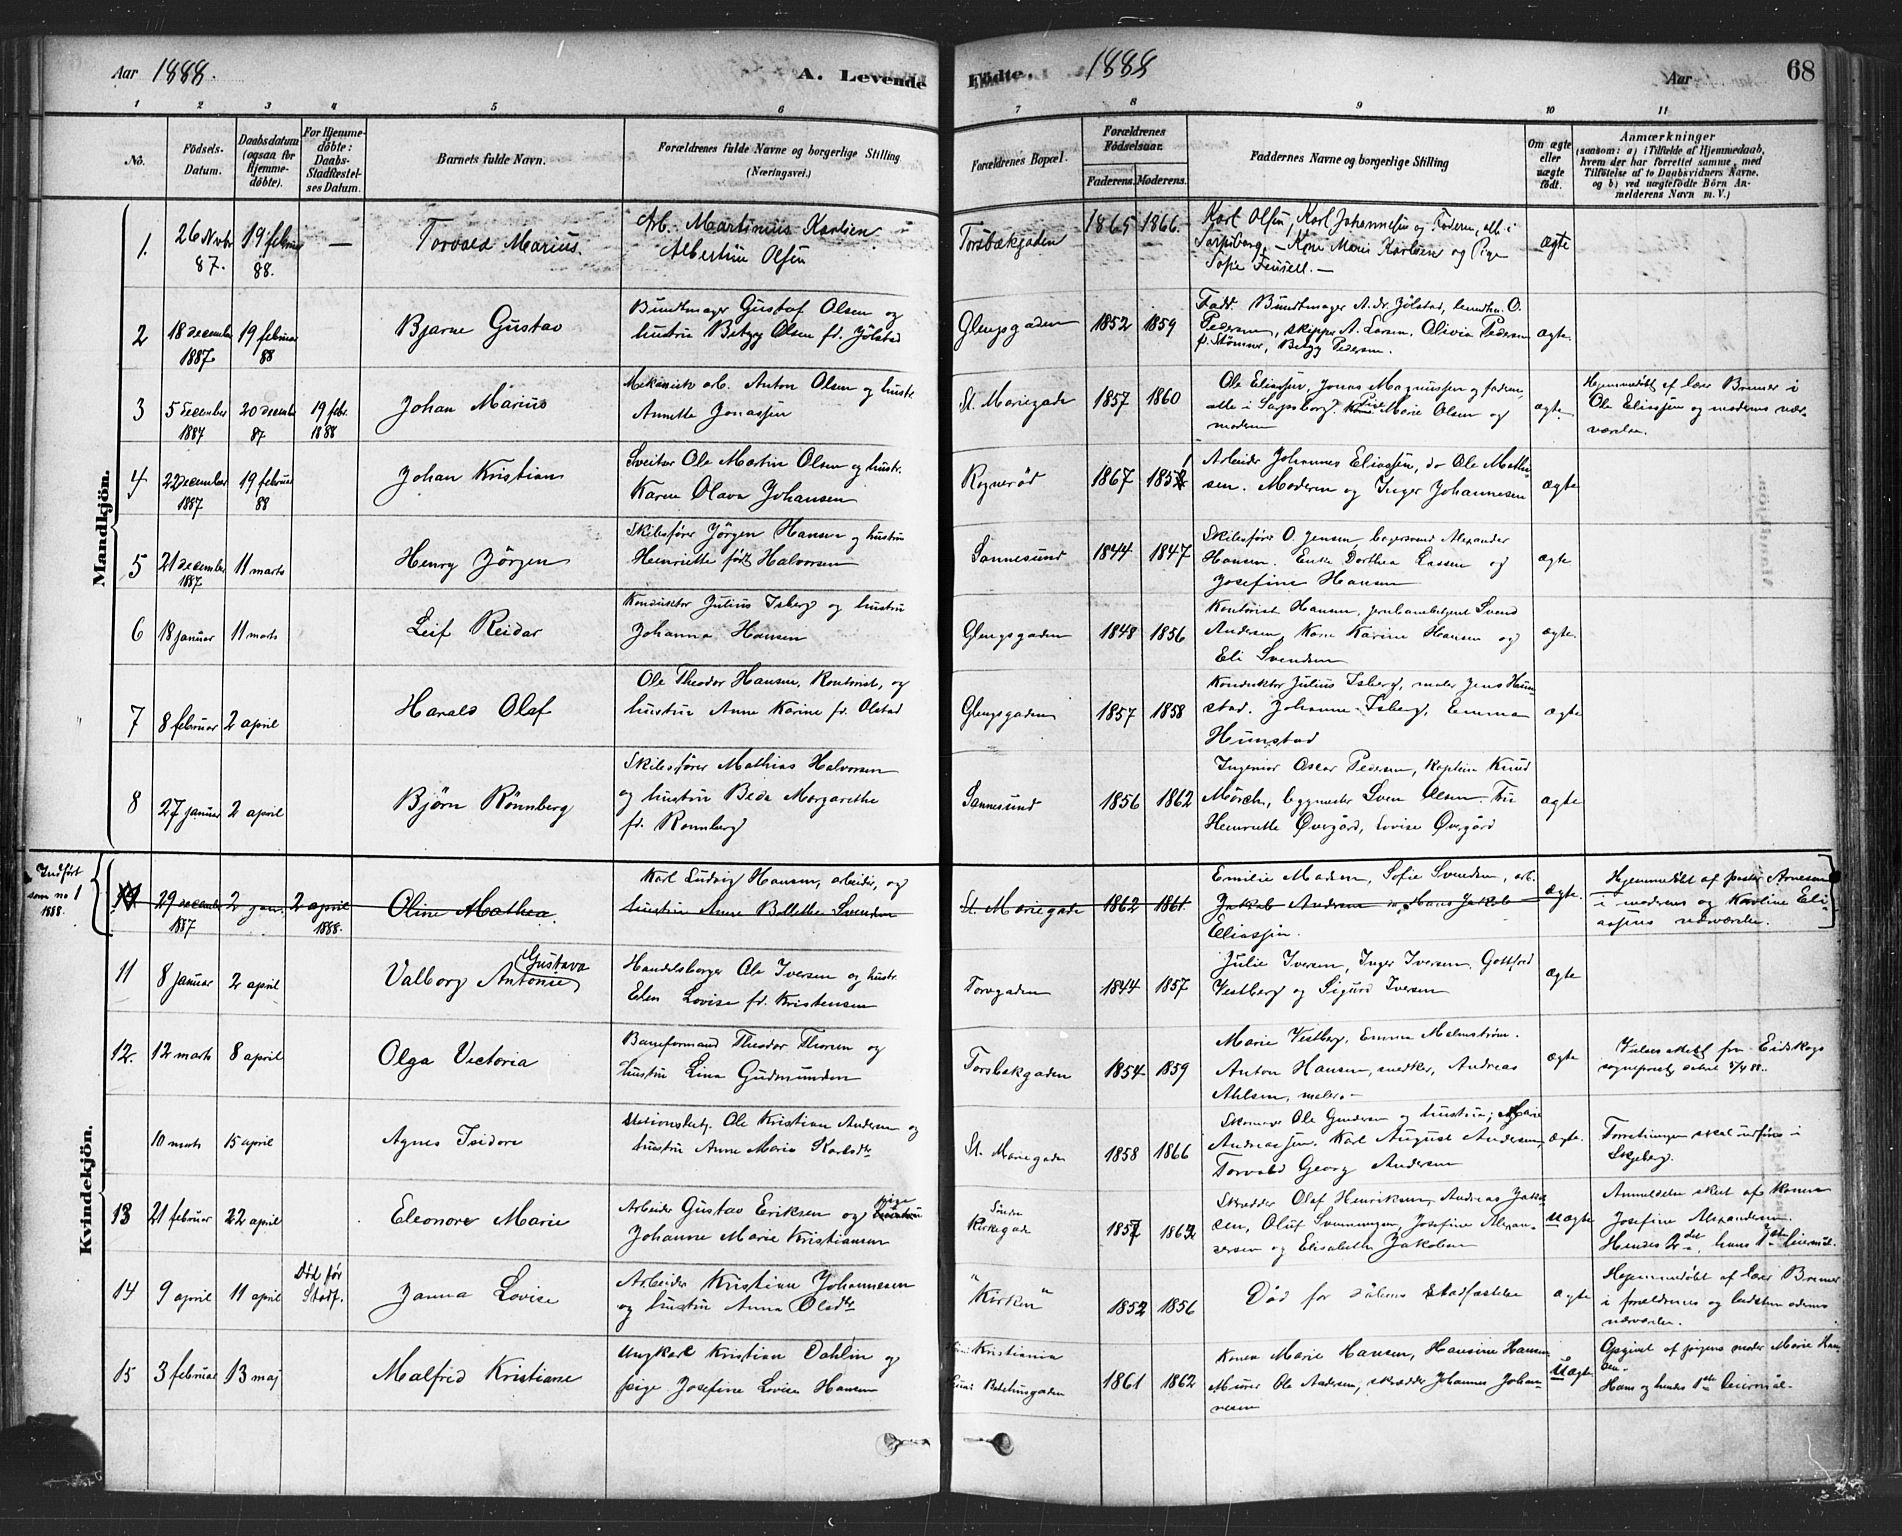 Aar 1888. A. Levende Födte. 1888 Aar 68
1 2 3 4 5 6 7 8 9 10 11
No.
Födsels-Datum.
Daabsdatum (ogsaa for Hjemme-döbte).
For Hjemme-döbte: Daabs-Stadfæstel-ses Datum.
Barnets fulde Navn.
Forældrenes fulde Navne og borgerlige Stilling (Næringsvei.)
Forældrenes Bopæl.
Forældrenes Födselsaar.
Faderens. Moderens.
Faddernes Navne og borgerlige Stilling
Om ægte eller uægte födt.
Anmærkninger
(saasom: a) i Tilfælde af Hjemmedaab, hvem der har forrettet samme, med Tilföielse af to Daabsvidners Navne. og b) ved uægtefödte Börn An-melderens Navn m. V.)
Mandkjön.
1. 26 Nvbr 87. 19 februar 88. — Torvald Marius. Arb. Martinius Karlsen Albertine Olsen Torsbækgaden 1865 1866 Karl Olsen, Karl Johannesen og Faderen, alle i Sarpsborg, — Kone Marie Karlsen og Pige Sofie — ægte
2 18 december 1887 19 februar 88 Bjarne Gustav Bundtmager Gustaf Olsen og hustru Betzy Olsen fd. Jølstad Glengsgaden 1852 1859 Fadd. Bundtmager A. Jølstad, O. Pedersen, skipper A. Larsen, Olivia Pedersen f. Stømner, Betzy Pedersen. ægte.
3 5 december 1887 20 decembr 87 19 febr. 1888 Johan Marius Mekanisk arb. Anton Olsen og hustr. Annette Jonassen St. Mariegade 1857 1860 Ole Eliassen, Jonas Magnussen og faderen, alle i Sarpsborg. Pige Marie Olsen og moderen ægte. Hjemmedøbt af læer Bremer i Ole Eliassen og moderens nær-værelse.
4 22 december 1887 19 februar 88 Johan Kristian Sveitser Ole Martin Olsen og hustr. Karen Olava Johansen Rognerød 1867 185 Arbeider Johannes Eliassen, do Ole Mathi-sen. Moderen og Inger Johannesen ægte
5 21 december 1887. 11 marts Henry Jörgen Skibsfører Jörgen Hansen og hustru Henriette født Halvorsen Sannesund 1844 1847 Skibsfører O. Jensen, Alexander Hansen. Enke Dorthea Lassen og Josefine Hansen ægte
6 18 januar 11 marts Leif Reidar Konduktör Julius Isberg og hustru Johanna Hansen Glengsgaden 1848 1856 Kontorist Hansen, jernbanebetjent Svend Andersen, Kone Karine Hansen og Eli Svendsen ægte.
7 8 februar 2 april Harald Olaf Ole Theodor Hansen, Kontorist, og hustru Anne Karine fd. Olstad Glengsgaden 1857 1858 Konduktør Julius Isberg, maler Jens Hun-stad. Johanne Isberg, Emma Hunstad ægte
8 27 januar 2 april Bjørn Rønnberg Skibsfører Mathias Halvorsen og hustru Beda Margarethe fd. Ronnberg Sannesund 1856 1862 Ingeniør Oscar Pedersen, kaptein Knud Mörch, bygmester Sven Olsen. Fru Henriette Övergård, Lovise Övergård ægte
Kvindekjön.
Indført som no 1 1888. 29 december 1887 2 jan. 2 april 1888. Oline Mathea. Karl Ludvig Hansen, arbeider, og hustru Anne Bollette Svendsen St. Mariegade 1862 1861. Emilie Madsen, Sofie Svendsen, arb. Jakob Andersen Hans Jakob Eliassen. ægte. Hjemmedøbt af pastor Arnesen i moderens og Karoline Eli-assens nærværelse.
11 8 januar 2 april Valborg Antonie Gustava Handelsborger Ole Iversen og hustr. Elen Lovise fd. Kristensen Torvgaden 1844 1857 Julie Iversen, Inger Iversen, Gottfred Vestberg og Sigurd Iversen ægte
12. 12 marts 8 april Olga Victoria Baneformand Theodor Thorsen og hustru Lina Gudmundsen Torsbækgaden 1854 1859 Marie Vestberg, Emma Malmstrøm. Anton Hansen, snedker, Andreas Ahlsen, maler.— ægte fra Eidskogs
10 marts 15 april Agnes Isidore Stationsbetj. Ole Kristian Andersen og hustru Anne Marie Karlsdtr St. Mariegaden 1858 1866 Skomager Ole Gundersen og hustru; Marie Andreassen, Karl August Andersen, Torvald Georg Andersen ægte. Forretningen skal indføres i Skjeberg.
13 21 februar 22 april Eleonore Marie Arbeider Gustav Eriksen og pige Johanne Marie Kristiansen Söndre Kirkegade 1857 1862 Skrædder Olaf Henriksen, Andreas Jakob-sen, Oluf Svenningsen, Josefine Alexan-dersen og Elisabeth Jakobsen uægte Anmeldelse skeet af konen Josefine Alexandersen. Hendes 2det, hans 1ste leiermål.
14 9 april 11 april Død før Stadf. Janna Lovise Arbeider Kristian Johannesen og hustru Anna Olsdtr "Kirken" 1852 1856 Død før dåbens stadfæstelse ægte Hjemmedøbt af læer Bremer i forældrenes og nærværelse.
15 3 februar 13 maj Malfrid Kristiane Ungkarl Kristian Dahlin og pige Josefine Lovise Hansen Kristiania 1861 1862 Konen Marie Hansen, Hansine Hansen Murer Ole Andersen, skrædder Johannes Johan-nesen uægte Opgivet af pigens moder Marie Han-sen. Hans og hendes 1ste leiermål.